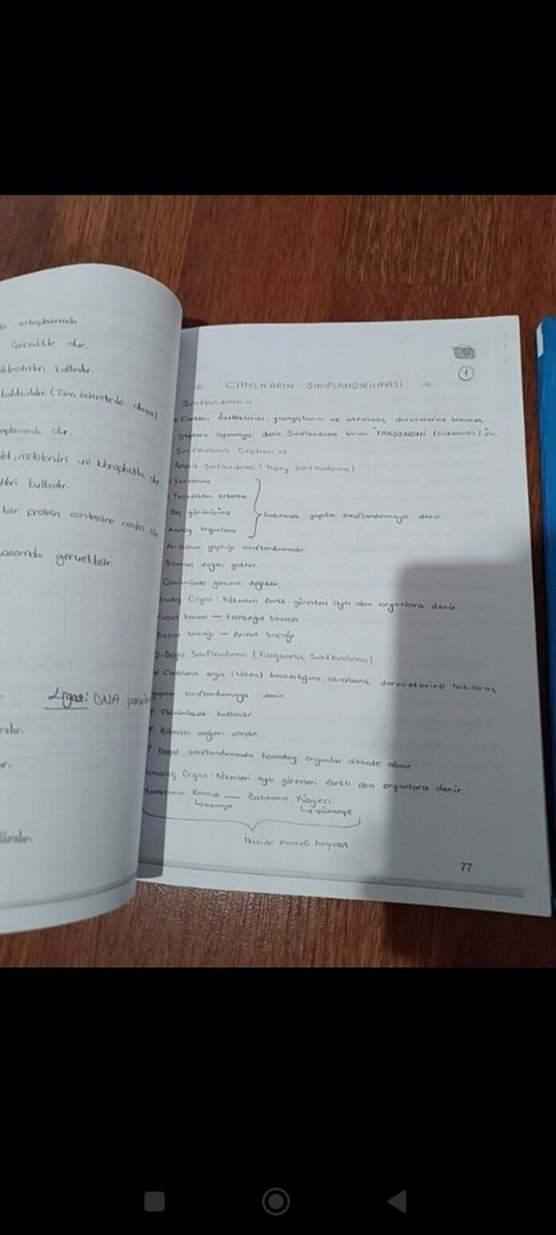 sitoplazmada
Gebelikte olur.
kullanılır.
(Tüm hücrelerde olmaz)
olur.
mitokondri ve kloroplastta olur.
kullanılır.
bir protein sentezine neden olur.
gerçekleşir.
Ligaz: DNA
CANLILARIN SINIFLANDIRILMASI
1
Sınıflandırma
Canlıların özelliklerini, yapayışlarını ve akrabalık derecelerine bakarak
gruplara ayırmaya denir. Sınıflandırma birimi TAKSONOMİ (Sistematik)
Sınıflandırma Çeşitleri
Ampirik Sınıflandırma (Yapay Sınıflandırma)
Şekillerine
Yaşadıkları ortama
Dış görünüşüne
bakılarak yapılan sınıflandırmaya denir.
Analog organlara
Aristonun yaptığı sınıflandırmadır.
Bilimsel değeri yoktur.
Günümüzde geçerli değildir.
Analog Organ: Kökenleri farklı, görevleri aynı olan organlara denir.
Kuşun kanadı — Kelebeğin kanadı
bacağı — Arının bacağı
2-Doğal Sınıflandırma (Filogenetik Sınıflandırma)
* Canlıların orjin (köken) benzerliğine, akrabalık derecelerine bakılarak
yapılan sınıflandırmaya denir.
* Günümüzde kullanılır.
* Bilimsel değeri vardır.
* Doğal sınıflandırmada homolog organlar dikkate alınır.
Homolog Organ: Kökenleri aynı görevleri farklı olan organlara denir.
Yarasanın Kanadı — Balinanın Yüzgeci
↳ uçmaya ↳ yüzmeye
İkiside memeli hayvan
77